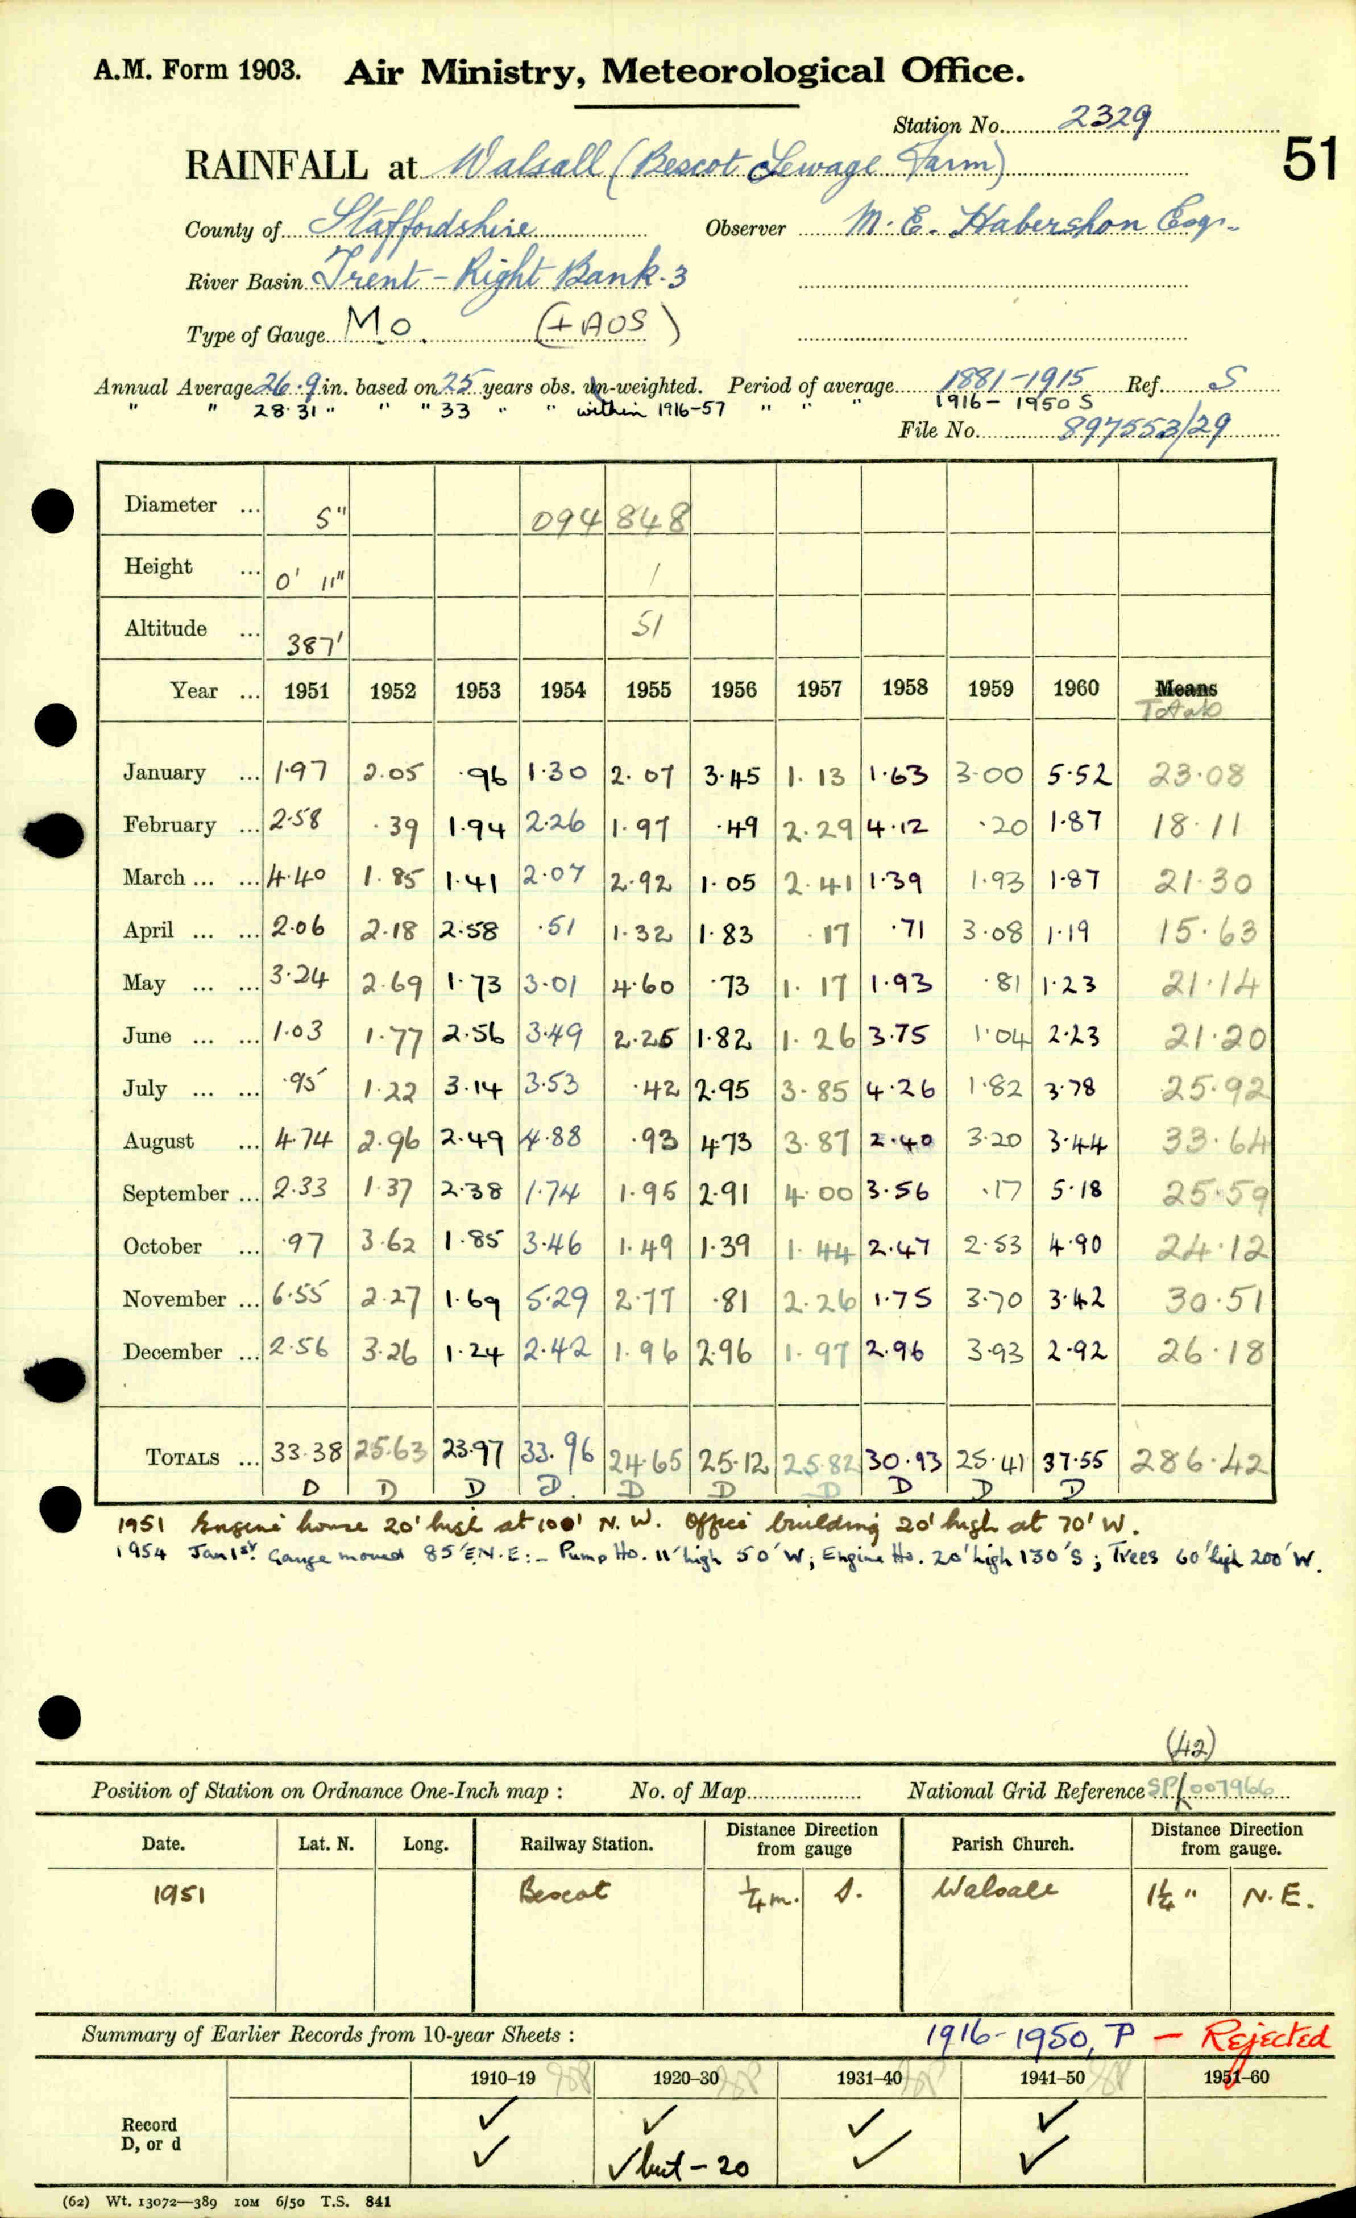 A.M. Form 1903. Air Ministry, Meteorological Office.
Station No. 2329
RAINFALL at Walsall (Bescot Sewage Farm)
51
County of Staffordshire Observer M. E. Habershon Esqr.
River Basin Trent - Right Bank. 3
Type of Gauge Mo. (+ AOS)
Annual Average 26.9 in. based on 25 years obs. un-weighted. Period of average 1881-1915 Ref. S
" " 28.31 " " " 33 " " within 1916-57 " " " 1916-1950 S
File No. 897553/29
Diameter ... 5" 094 848
Height ... 0' 11" 1
Altitude ... 387' 51
Year ... 1951 1952 1953 1954 1955 1956 1957 1958 1959 1960 Means
Totals
January ... 1.97 2.05 .96 1.30 2.07 3.45 1.13 1.63 3.00 5.52 23.08
February ... 2.58 .39 1.94 2.26 1.97 .49 2.29 4.12 .20 1.87 18.11
March ... ... 4.40 1.85 1.41 2.07 2.92 1.05 2.41 1.39 1.93 1.87 21.30
April ... ... 2.06 2.18 2.58 .51 1.32 1.83 .17 .71 3.08 1.19 15.63
May ... ... 3.24 2.69 1.73 3.01 4.60 .73 1.17 1.93 .81 1.23 21.14
June ... ... 1.03 1.77 2.56 3.49 2.25 1.82 1.26 3.75 1.04 2.23 21.20
July ... ... .95 1.22 3.14 3.53 .42 2.95 3.85 4.26 1.82 3.78 25.92
August ... 4.74 2.96 2.49 4.88 .93 4.73 3.87 2.40 3.20 3.44 33.64
September ... 2.33 1.37 2.38 1.74 1.95 2.91 4.00 3.56 .17 5.18 25.59
October ... .97 3.62 1.85 3.46 1.49 1.39 1.44 2.47 2.53 4.90 24.12
November ... 6.55 2.27 1.69 5.29 2.77 .81 2.26 1.75 3.70 3.42 30.51
December ... 2.56 3.26 1.24 2.42 1.96 2.96 1.97 2.96 3.93 2.92 26.18
TOTALS ... 33.38 25.63 23.97 33.96 24.65 25.12 25.82 30.93 25.41 37.55 286.42
D D D D. D D D D D D
1951 Engine house 20' high at 100' N.W. Office building 20' high at 70' W.
1954 Jan 1st. Gauge moved 85' E.N.E:- Pump Ho. 11' high 50' W; Engine Ho. 20' high 130' S; Trees 60' high 200' W.
(42)
Position of Station on Ordnance One-Inch map : No. of Map National Grid Reference SP/007966
Date. Lat. N. Long. Railway Station. Distance from Direction gauge Parish Church. Distance from Direction gauge.
1951 Bescot 1/4 m. S. Walsall 1 1/4 " N.E.
Summary of Earlier Records from 10-year Sheets : 1916-1950, P - Rejected
1910-19 1920-30 1931-40 1941-50 1951-60
Record ✓ ✓ ✓ ✓
D, or d ✓ ✓ but - 20 ✓ ✓
(62) Wt. 13072—389 10M 6/50 T.S. 841